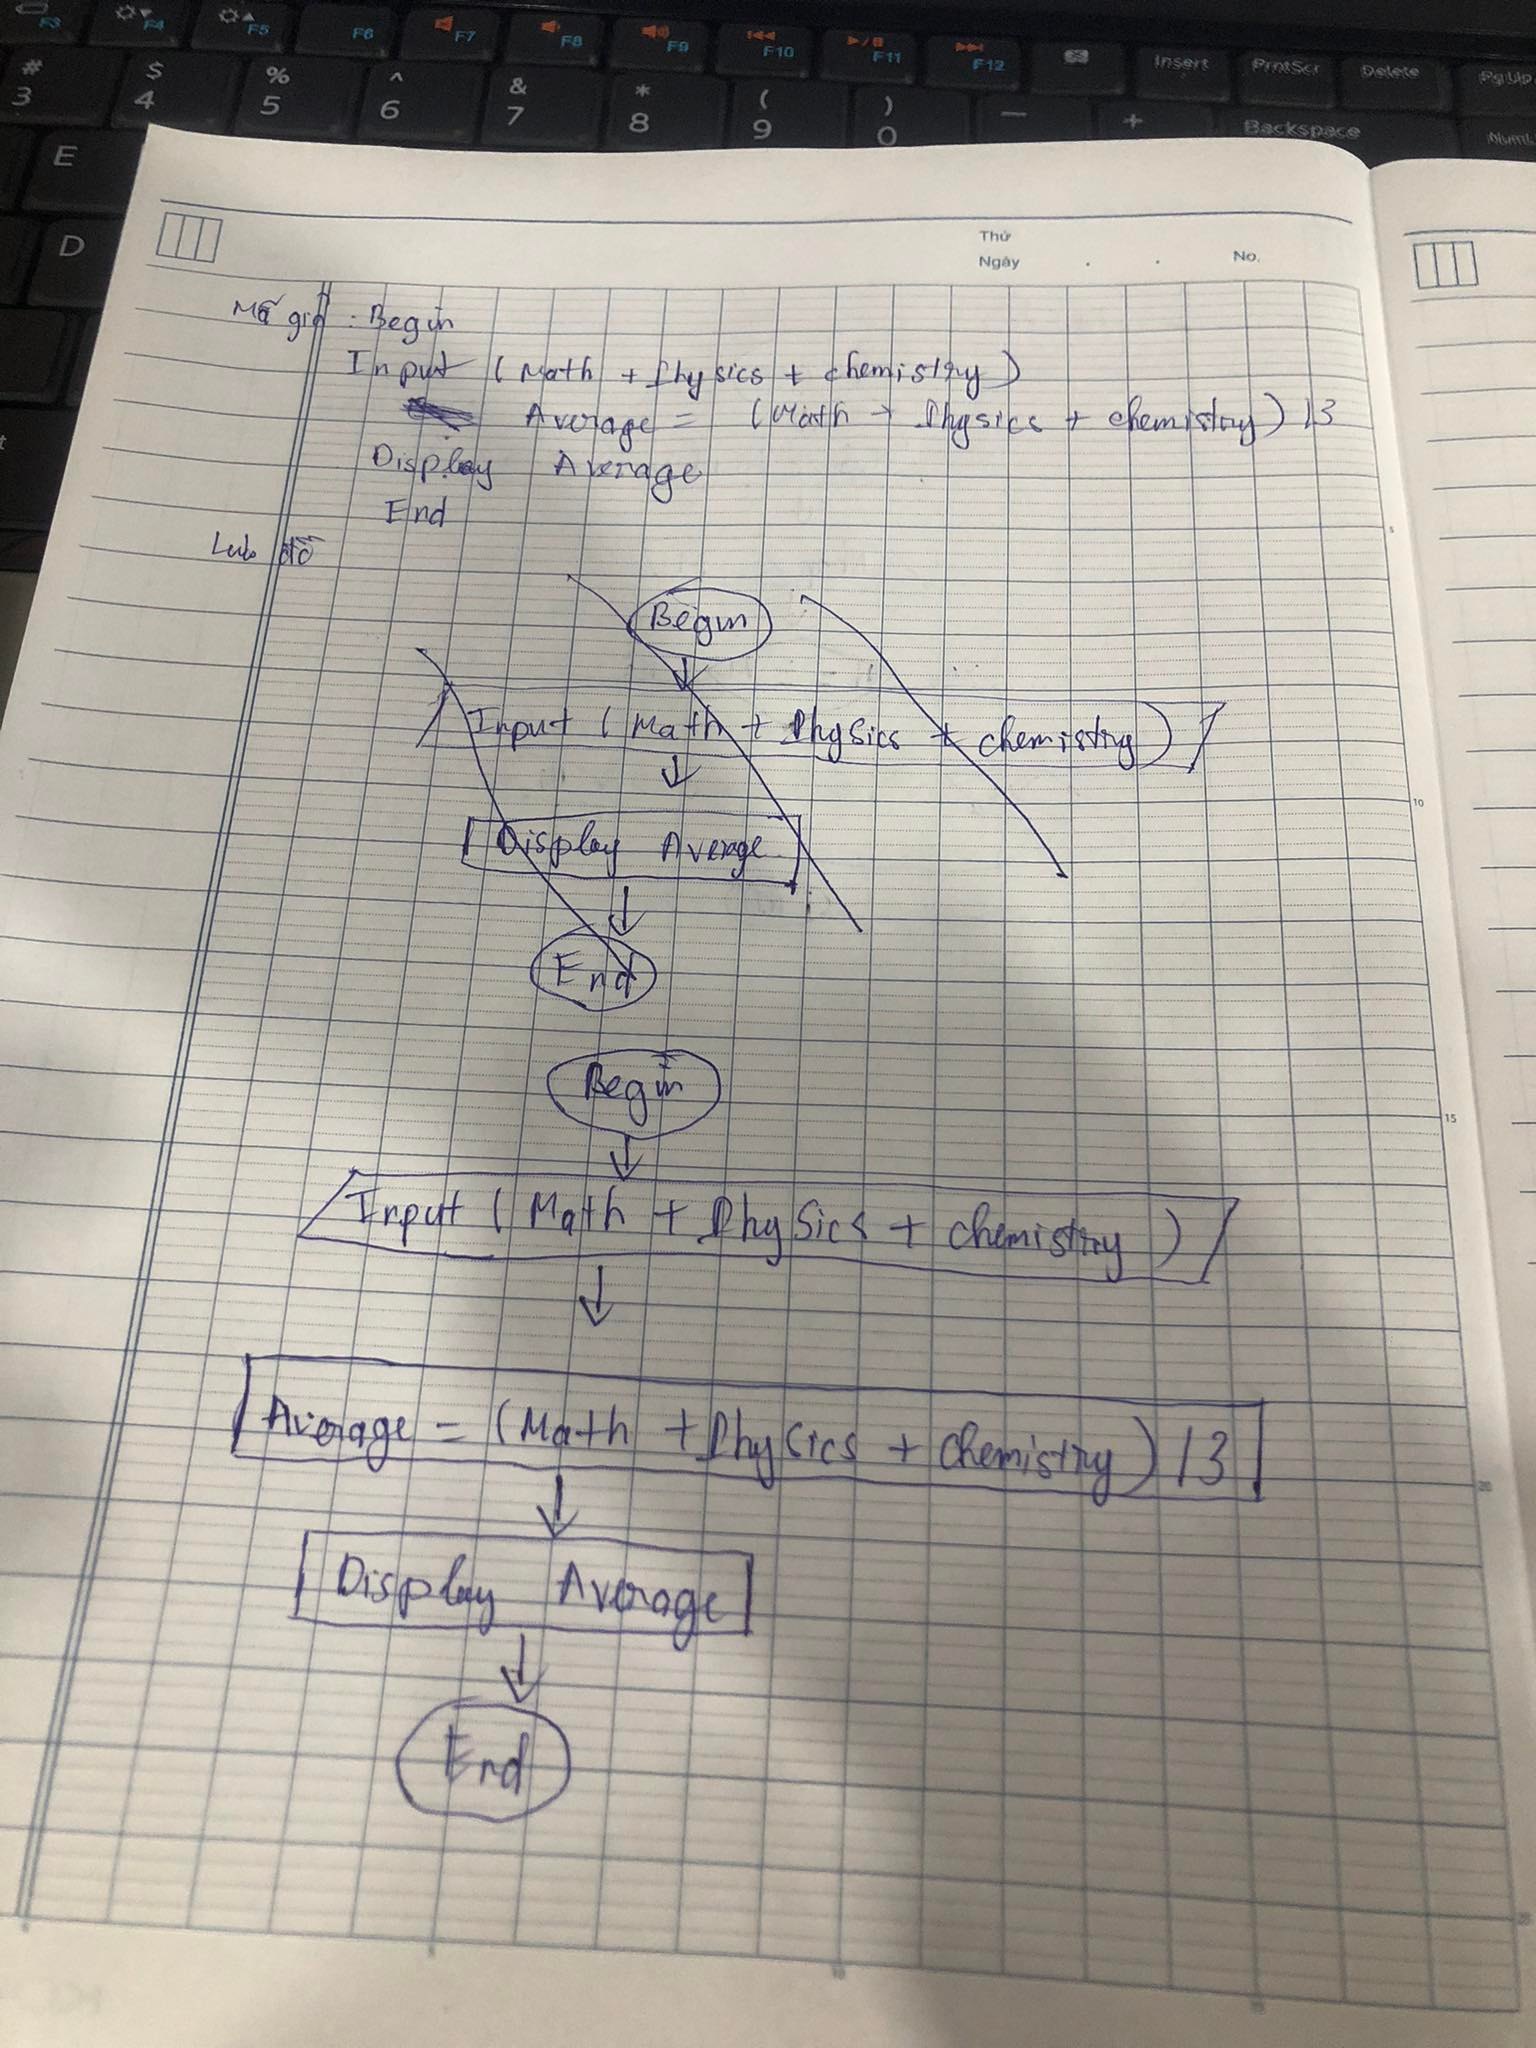 F3 F4 F5 F6 F7 F8 F9 F10 F11 F12 Insert PrntScr Delete PgUp
# $ % ^ & * ( ) — +
3 4 5 6 7 8 9 0 Backspace
E
D
Thứ
Ngày . . No.
Mã giả : Begin
Input (Math + Physics + chemistry)
Average = (Math + Physics + chemistry) / 3
Display Average
End
Lưu đồ
5
Begin
Input (Math + Physics + chemistry)
10
Display Average
End
Begin
15
Input (Math + Physics + chemistry)
Average = (Math + Physics + chemistry) / 3
20
Display Average
End